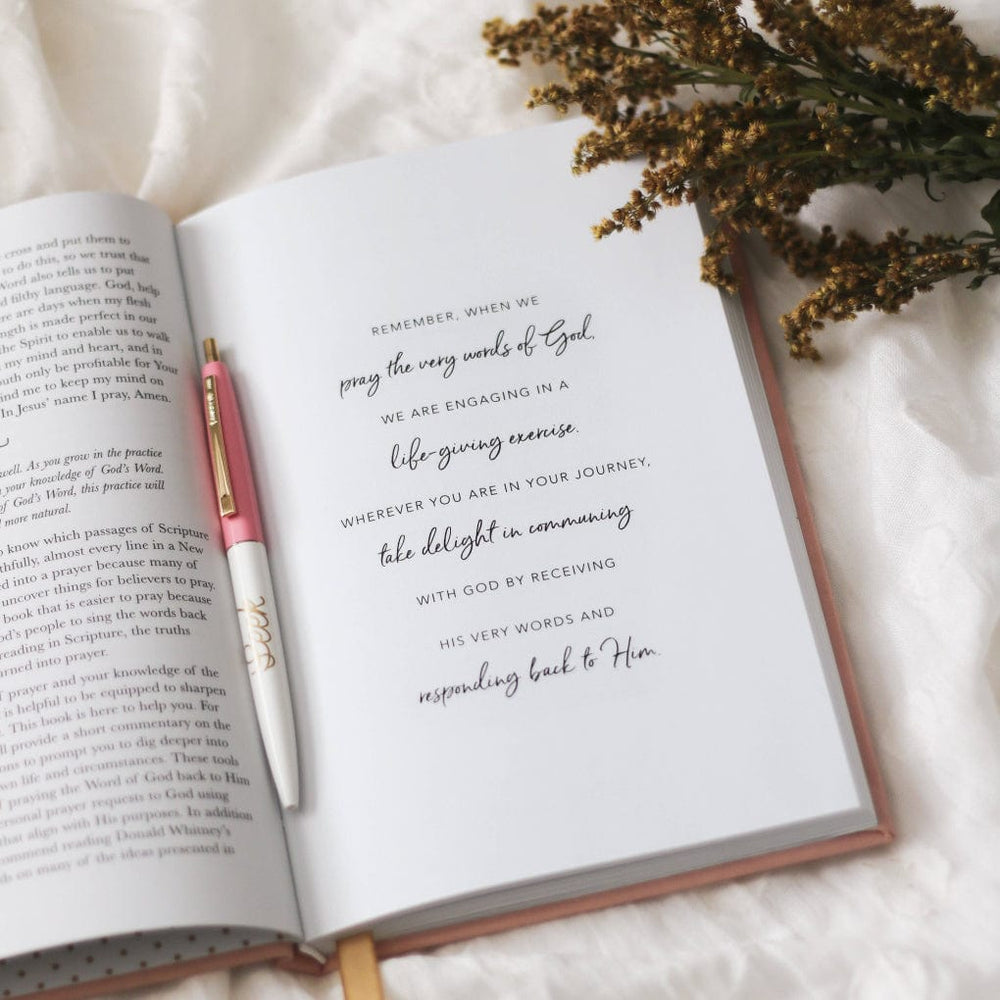 cross and put them to
to do this, so we trust that
Word also tells us to put
filthy language. God, help
are days when my flesh
is made perfect in our
the Spirit to enable us to walk
my mind and heart, and in
only be profitable for Your
me to keep my mind on
In Jesus' name I pray, Amen.
well. As you grow in the practice
your knowledge of God's Word.
of God's Word, this practice will
more natural.
know which passages of Scripture
almost every line in a New
into a prayer because many of
uncover things for believers to pray.
book that is easier to pray because
God's people to sing the words back
reading in Scripture, the truths
turned into prayer.
prayer and your knowledge of the
is helpful to be equipped to sharpen
. This book is here to help you. For
provide a short commentary on the
to prompt you to dig deeper into
own life and circumstances. These tools
praying the Word of God back to Him
personal prayer requests to God using
that align with His purposes. In addition
recommend reading Donald Whitney's
on many of the ideas presented in
Seek
REMEMBER, WHEN WE
pray the very words of God,
WE ARE ENGAGING IN A
life-giving exercise.
WHEREVER YOU ARE IN YOUR JOURNEY,
take delight in communing
WITH GOD BY RECEIVING
HIS VERY WORDS AND
responding back to Him.